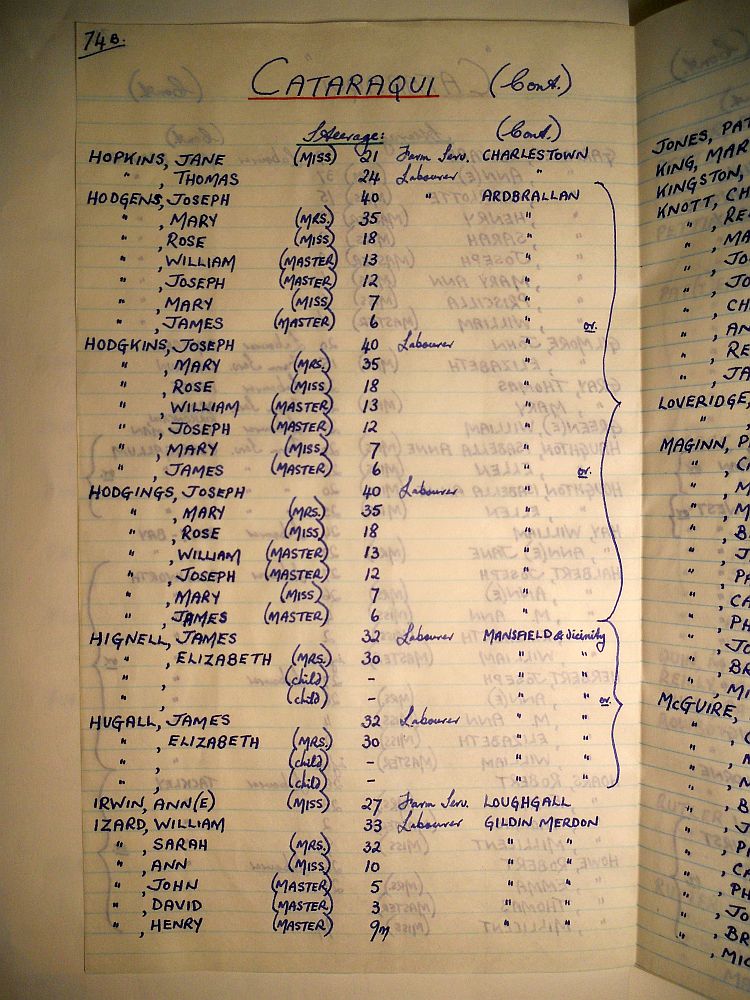 74B.
CATARAQUI (Cont.)
Steerage: (Cont.)
HOPKINS, JANE (MISS) 21 Farm Serv. CHARLESTOWN
" , THOMAS 24 Labourer "
HODGENS, JOSEPH 40 " ARDBRALLAN
" , MARY (MRS.) 35 "
" , ROSE (MISS) 18 "
" , WILLIAM (MASTER) 13 "
" , JOSEPH (MASTER) 12 "
" , MARY (MISS) 7 "
" , JAMES (MASTER) 6 " or.
HODGKINS, JOSEPH 40 Labourer "
" , MARY (MRS.) 35 "
" , ROSE (MISS) 18 "
" , WILLIAM (MASTER) 13 "
" , JOSEPH (MASTER) 12 "
" , MARY (MISS) 7 "
" , JAMES (MASTER) 6 " or.
HODGINGS, JOSEPH 40 Labourer "
" , MARY (MRS.) 35 "
" , ROSE (MISS) 18 "
" , WILLIAM (MASTER) 13 "
" , JOSEPH (MASTER) 12 "
" , MARY (MISS) 7 "
" , JAMES (MASTER) 6 "
HIGNELL, JAMES 32 Labourer MANSAELD & Vicinity
" , ELIZABETH (MRS.) 30 " "
" , (child) - " "
" , (child) - " " or.
HUGALL, JAMES 32 Labourer " "
" , ELIZABETH (MRS.) 30 " "
" , (child) - " "
" , (child) - " "
IRWIN, ANN(E) (MISS) 27 Farm Serv. LOUGHGALL
IZARD, WILLIAM 33 Labourer GILDIN MERDON
" , SARAH (MRS.) 32 " "
" , ANN (MISS) 10 " "
" , JOHN (MASTER) 5 " "
" , DAVID (MASTER) 3 " "
" , HENRY (MASTER) 9m " "
JONES, PAT
KING, MAR
KINGSTON,
KNOTT, CH
" , RE
" , MA
" , JO
" , JO
" , CH
" , AN
" , RE
" , JA
LOVERIDGE,
" ,
MAGINN, P
" , CA
" , M
" , M
" , B
" , J
" , PA
" , CA
" , PH
" , JO
" , BR
" , MI
McGUIRE,
" , C
" , M
" , N
" , B
" , J
" , P
" , CA
" , PH
" , JO
" , BR
" , MIC